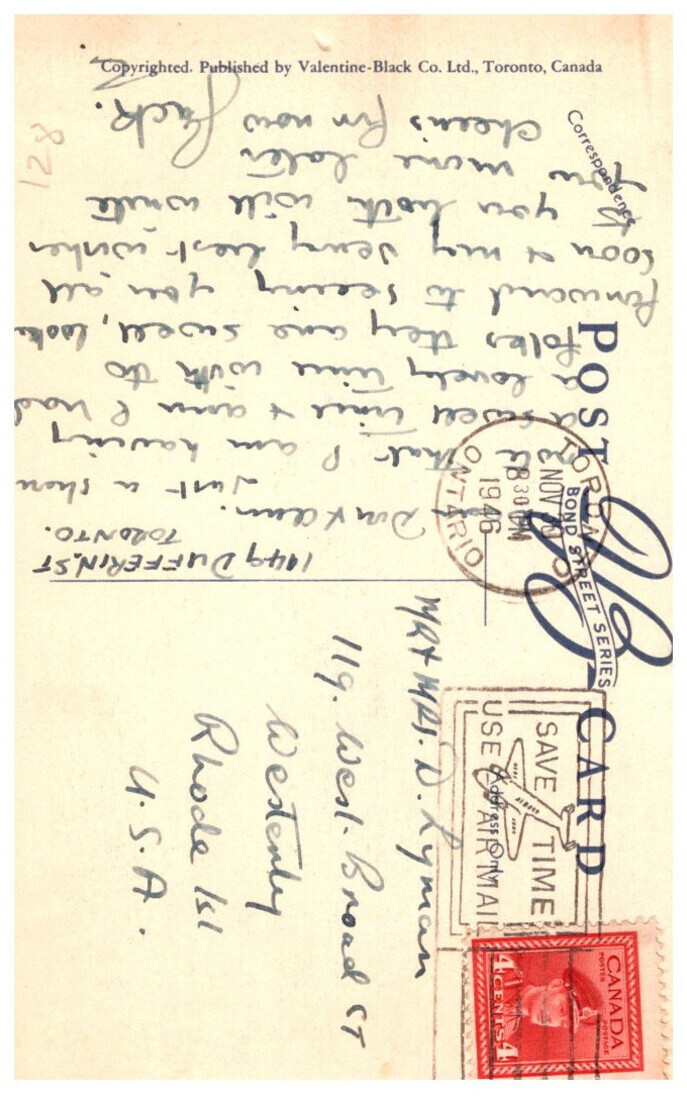 Copyrighted. Published by Valentine-Black Co. Ltd., Toronto, Canada
POST CARD
BOND STREET SERIES
VB
Correspondence
Address Only
TORONTO
8 30 PM
NOV 10
1946
ONTARIO
SAVE TIME
USE AIR MAIL
CANADA
POSTES POSTAGE
4 CENTS 4
1149 DUFFERIN. ST
TORONTO.
Dear Dort & Ann.
Just a short
note that I am having
a swell time & Ann I had
a lovely time with to
folks they are swell, looking
forward to seeing you all
soon & my very best wishes
to you both will write
you more later
Cheerio for now
Jack.
128
MR & MRS. D. Lyman
119. West. Broad ST
Westerly
Rhode Isl
U.S.A.